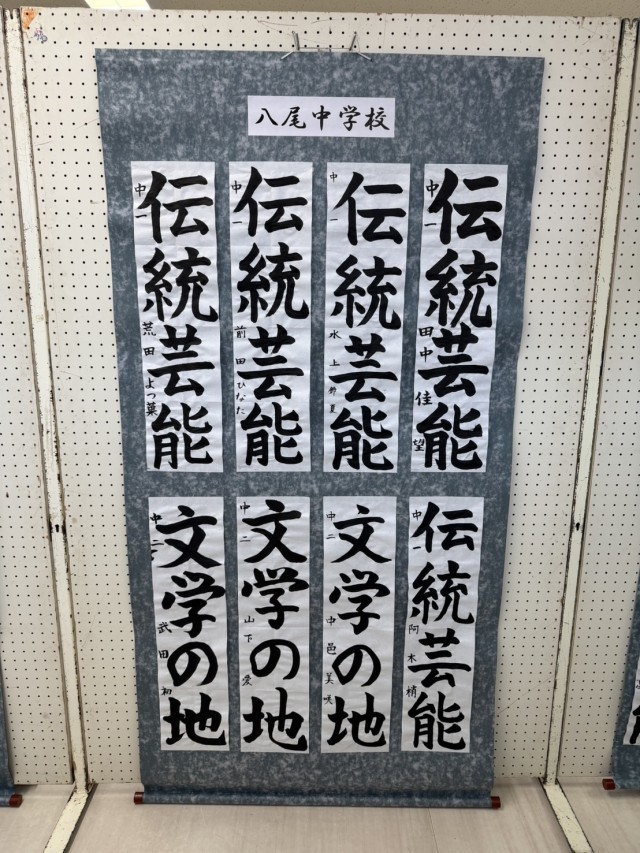 八尾中学校
伝統芸能
中一 田中佳望
伝統芸能
中一 水上
伝統芸能
中一 前田ひなた
伝統芸能
中一 荒田よつ葉
伝統芸能
中一 阿木梢
文学の地
中二 中邑美咲
文学の地
中二 山下愛
文学の地
中二 武田初